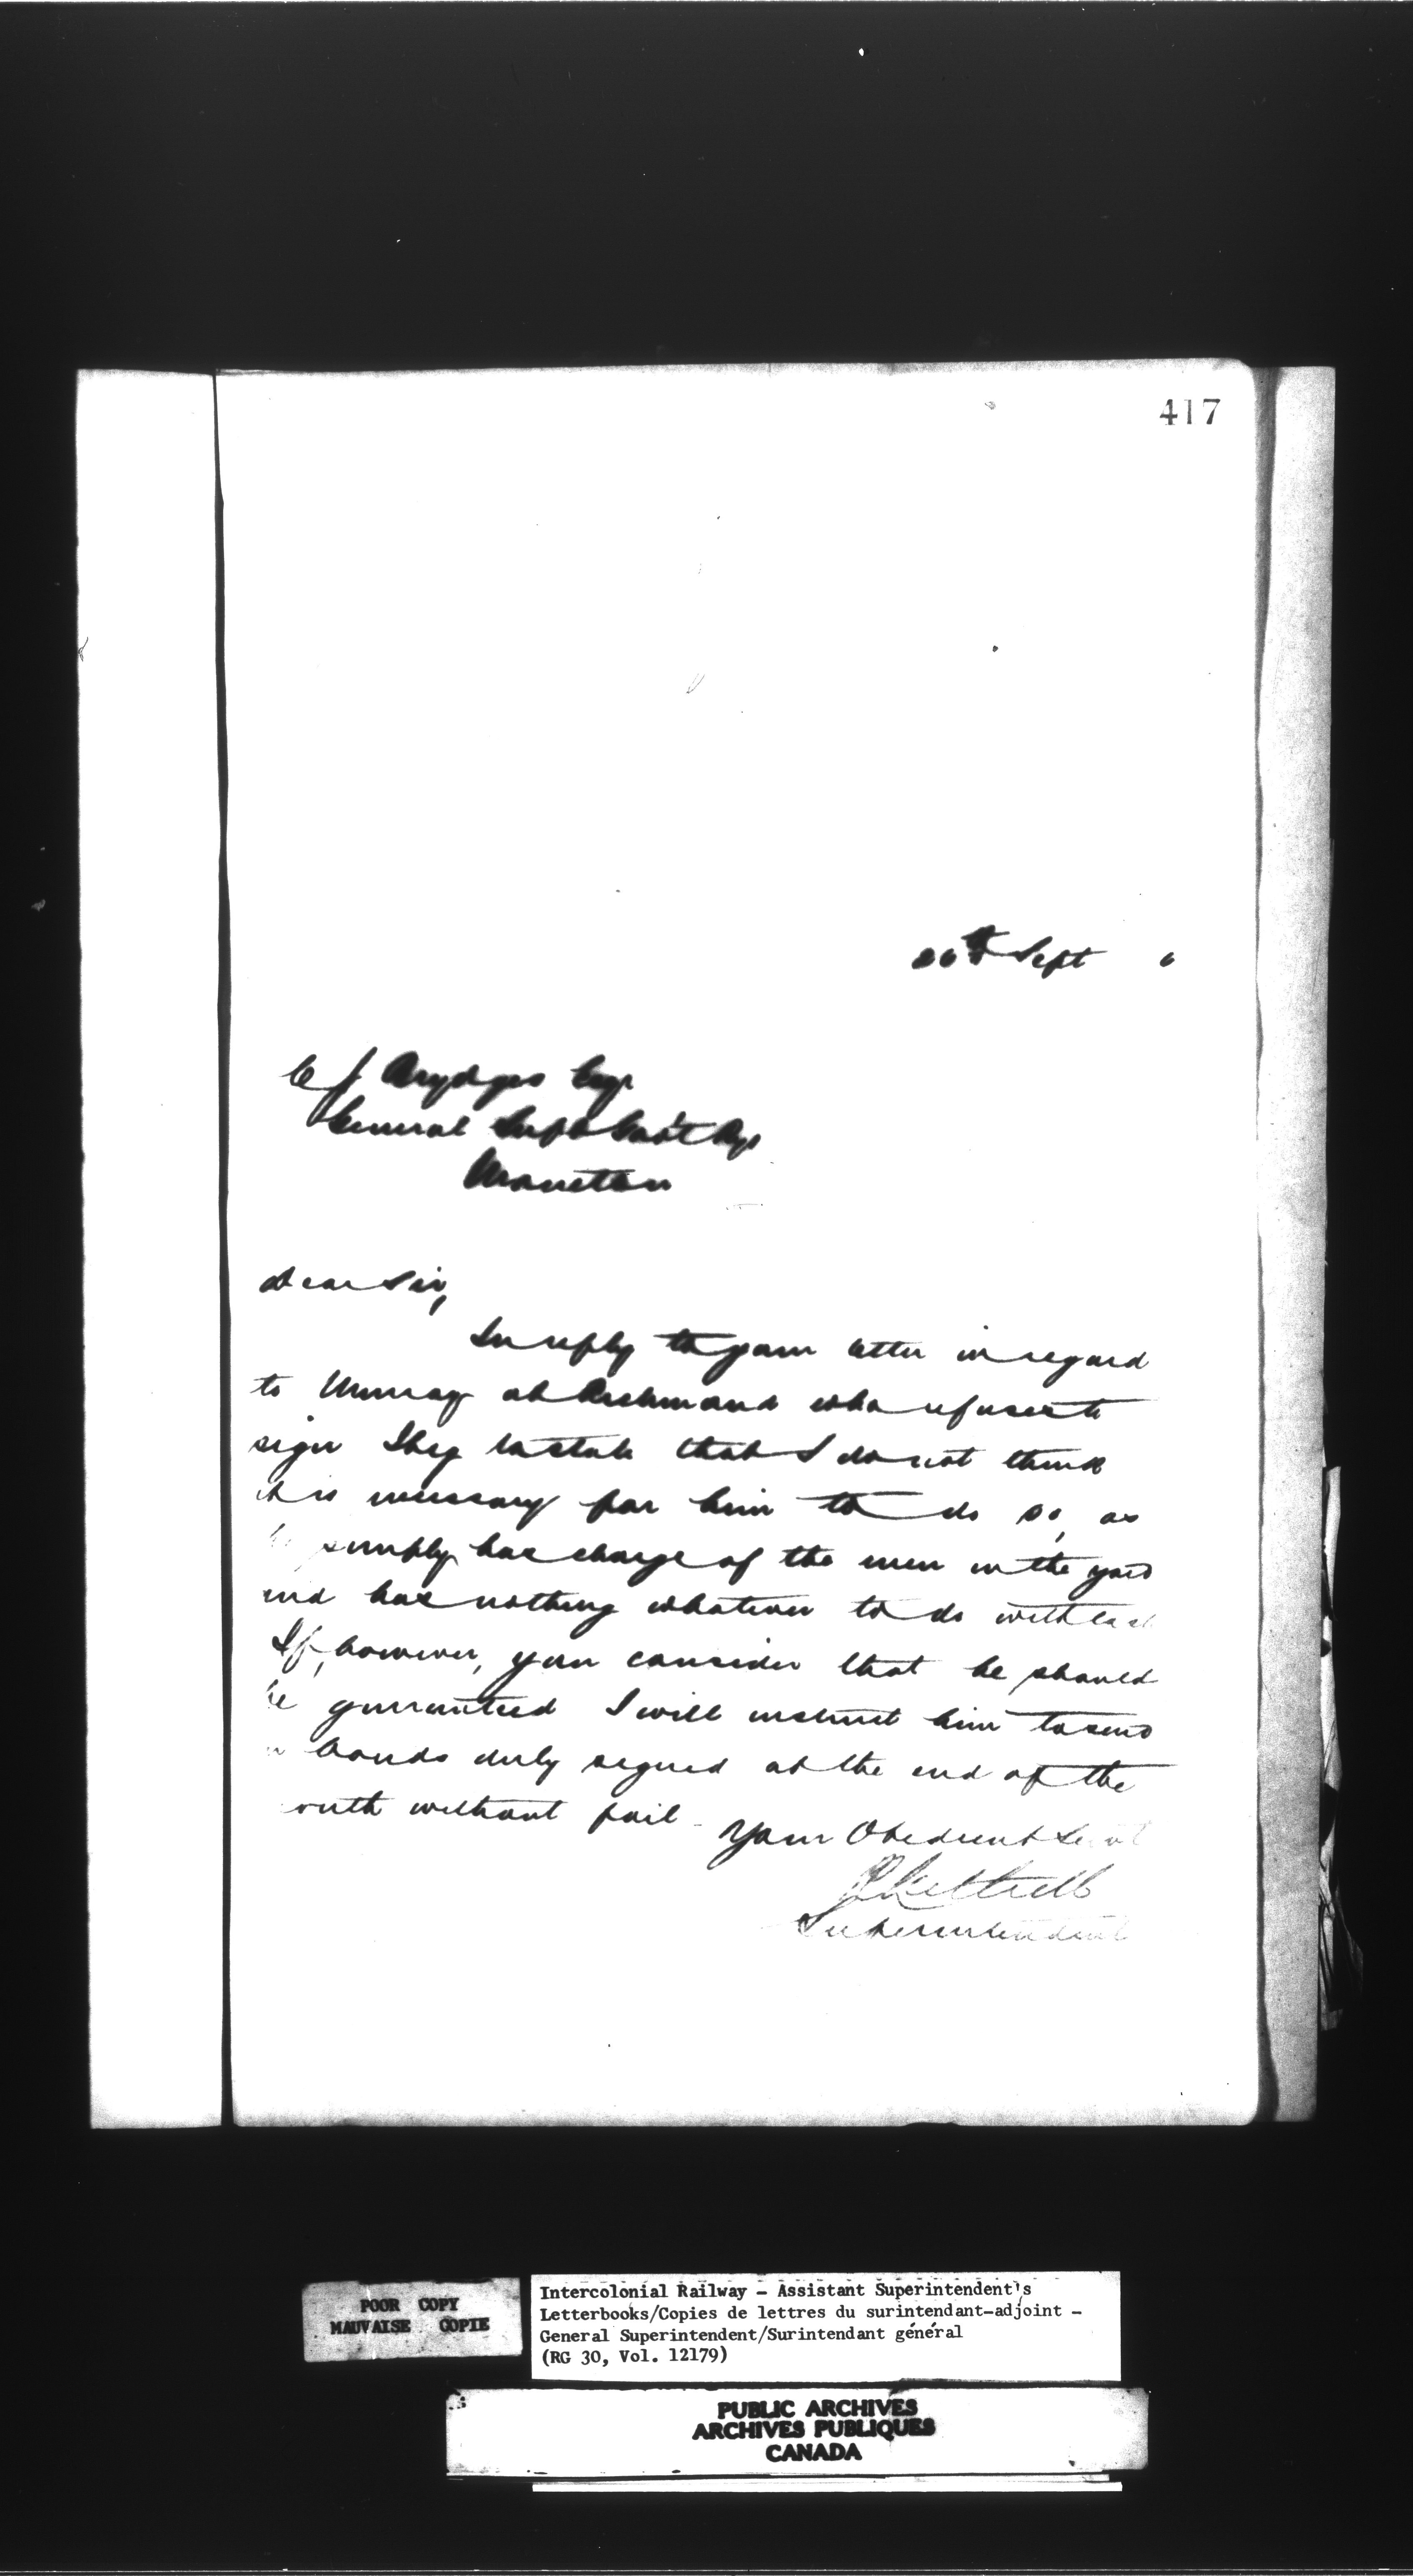 417
20th Sept 6
C J Brydges Esqr
General Supt Gov't Rys
Moncton
Dear Sir,
In reply to your letter in regard
to Murray at Richmond who refuses to
sign I beg to state that I do not think
it is necessary for him to do so, as
he simply has charge of the men in the yard
and has nothing whatever to do with cash
If, however, you consider that he should
be guaranteed I will instruct him to send
in bonds duly signed at the end of the
month without fail.
Your Obedient Servt
Superintendent
POOR COPY
MAUVAISE COPIE
Intercolonial Railway - Assistant Superintendent's
Letterbooks/Copies de lettres du surintendant-adjoint -
General Superintendent/Surintendant général
(RG 30, Vol. 12179)
PUBLIC ARCHIVES
ARCHIVES PUBLIQUES
CANADA